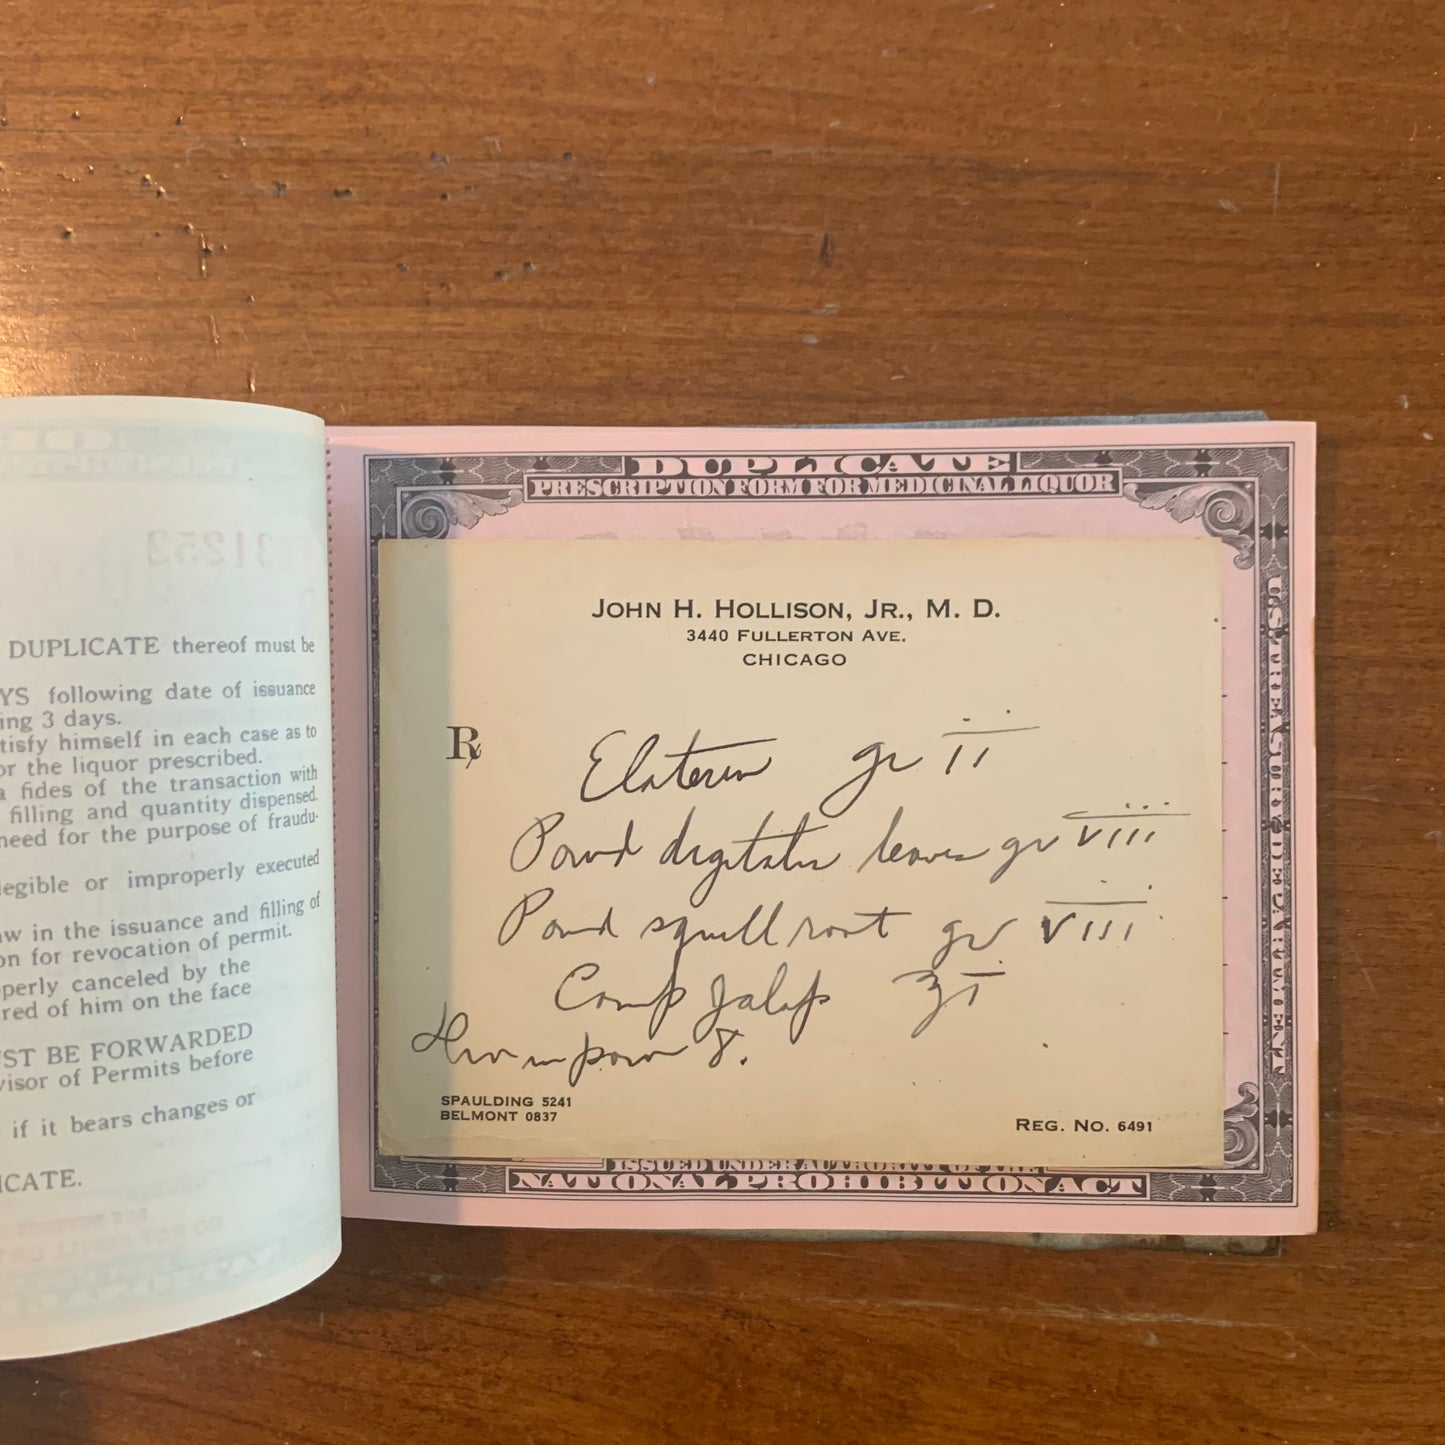 DUPLICATE thereof must be
YS following date of issuance
ing 3 days.
tisfy himself in each case as to
or the liquor prescribed.
a fides of the transaction with
filling and quantity dispensed.
need for the purpose of fraudu-
legible or improperly executed
aw in the issuance and filling of
on for revocation of permit.
operly canceled by the
red of him on the face
UST BE FORWARDED
visor of Permits before
if it bears changes or
ICATE.
DUPLICATE
PRESCRIPTION FORM FOR MEDICINAL LIQUOR
JOHN H. HOLLISON, JR., M. D.
3440 FULLERTON AVE.
CHICAGO
Rx
Elaterin gr ii
Powd digitalis leaves gr viii
Powd squill root gr viii
Comp Jalap ʒi
8.
SPAULDING 5241
BELMONT 0837
REG. NO. 6491
ISSUED UNDER AUTHORITY OF THE
NATIONAL PROHIBITION ACT